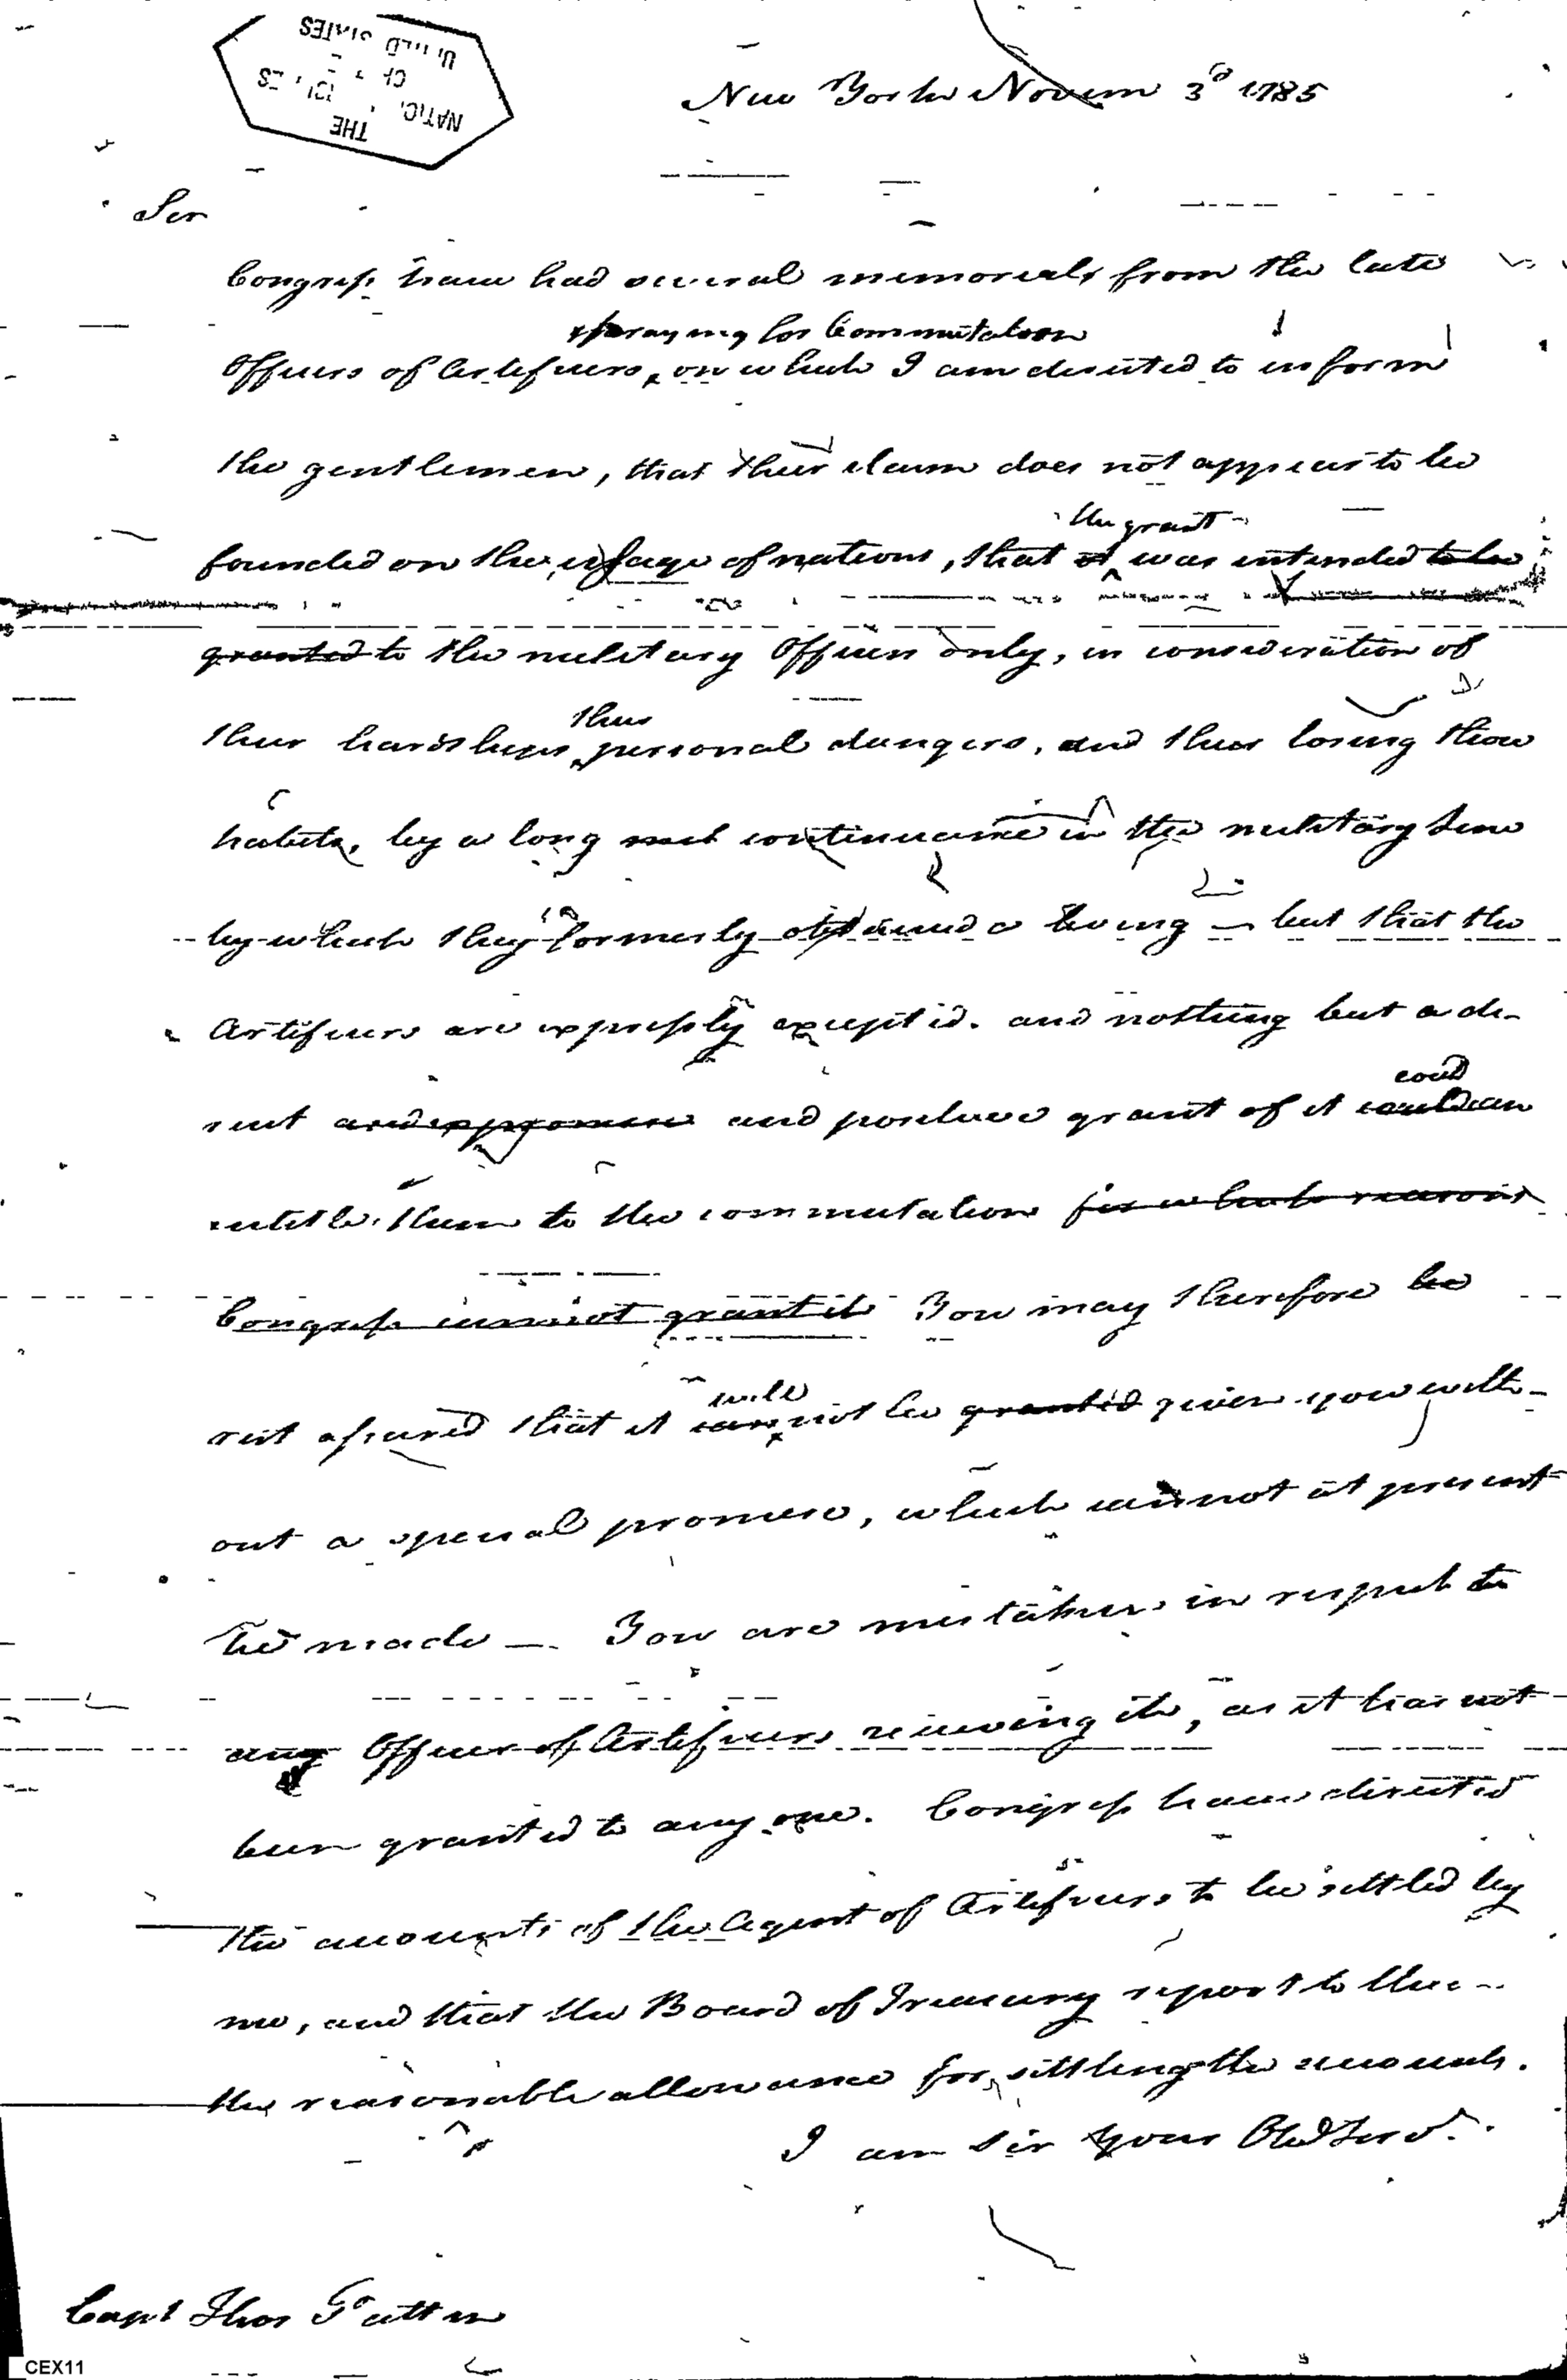 THE
NATIONAL ARCHIVES
OF THE
UNITED STATES
New York Novem 3d 1785
Sir
Congress have had several memorials from the late
praying for Commutation
Officers of Artificers, on which I am directed to inform
the gentlemen, that their claim does not appear to be
the grant
founded on the usage of nations, that it was intended to be
granted to the military Officers only, in consideration of
their
their hardships, personal dangers, and their losing those
habits, by a long continuance in the military line
by which they formerly obtained a living — but that the
Artificers are expressly excepted. and nothing but a de-
coud
cent and expromise and positive grant of it could en
entitle them to the commutation for which reasons
Congress cannot grant it You may therefore be
will
rest assured that it can not be granted given you with-
out a special promise, which cannot at present
be made — You are mistaken in respect to
any Officer of Artificers receiving it, as it has not
been granted to any one. Congress have directed
the accounts of the Agent of Artificers to be settled by
me, and that the Board of Treasury report to them
the reasonable allowance for settling the accounts.
I am Sir your Obed Servt.
Capt Thos Patten
CEX11